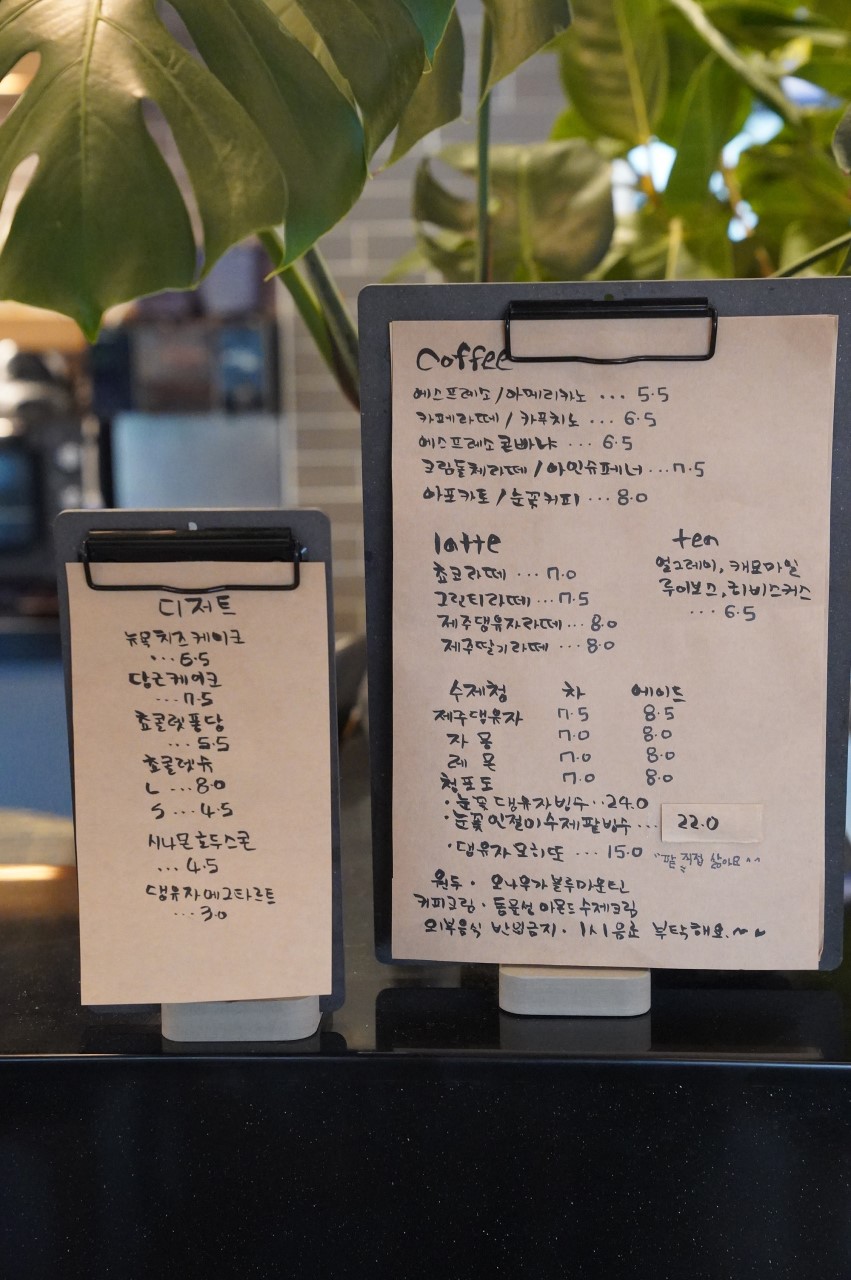 디저트
뉴욕치즈케이크
... 6.5
당근케이크
... 7.5
쵸콜렛퐁당
... 5.5
쵸콜렛슈
L ... 8.0
S ... 4.5
시나몬호두스콘
... 4.5
댕유자에그타르트
... 3.0
Coffee
에스프레소/아메리카노 ... 5.5
카페라떼/카푸치노 ... 6.5
에스프레소콘빠냐 ... 6.5
크림돌체라떼/아인슈페너 ... 7.5
아포카토/눈꽃커피 ... 8.0
latte
쵸코라떼 ... 7.0
그린티라떼 ... 7.5
제주댕유자라떼 ... 8.0
제주딸기라떼 ... 8.0
tea
얼그레이, 캐모마일
루이보스, 히비스커스
... 6.5
수제청 차 에이드
제주댕유자 7.5 8.5
자몽 7.0 8.0
레몬 7.0 8.0
청포도 7.0 8.0
·눈꽃댕유자빙수 ·· 24.0
·눈꽃인절미수제팥빙수 ... 22.0
"팥" 직접 삶아요^^
·댕유자모히또 ... 15.0
원두 · 모나무가블루마운틴
커피크림 · 동물성 아몬드수제크림
외부음식 반입금지 · 1人1음료 부탁해요.~